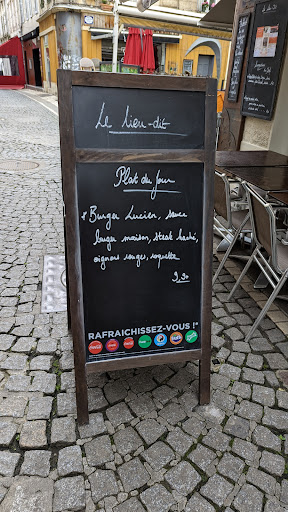 Le lieu-dit
Plat du jour
* Burger Lucien, sauce
burger maison, steak haché,
oignons rouges, roquette
9,90
RAFRAICHISSEZ-VOUS !*